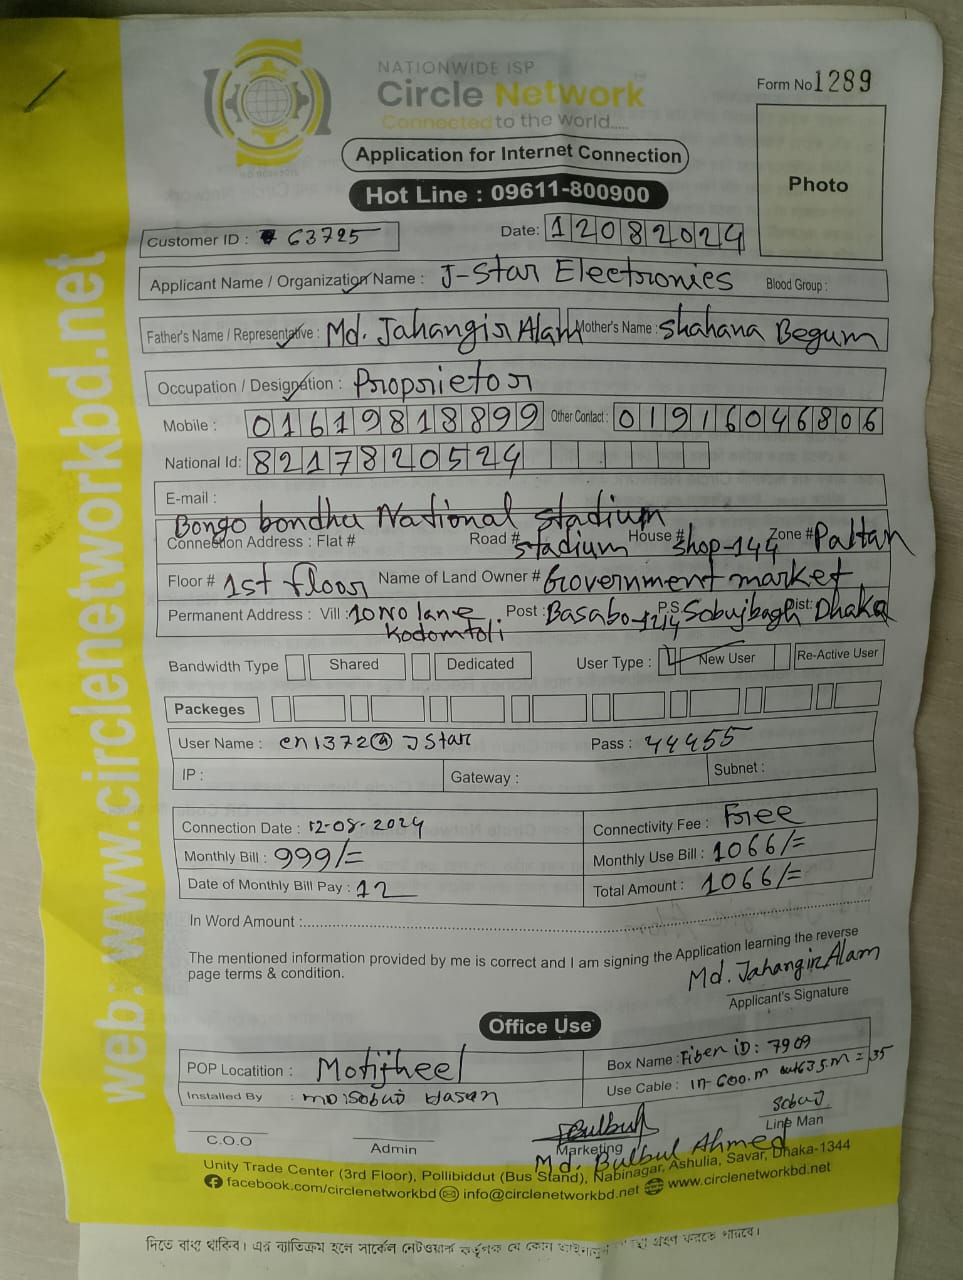 NATIONWIDE ISP
Circle Network
Connected to the World.....
Form No 1289
Application for Internet Connection
Hot Line : 09611-800900
Photo
Customer ID : 63725
Date: 12082024
Applicant Name / Organization Name : J-Star Electronies Blood Group :
Father's Name / Representative : Md. Jahangir Alam Mother's Name : Shahana Begum
Occupation / Designation : Proprietor
Mobile : 01619818899 Other Contact : 01916046806
National Id: 8217820524
E-mail :
Bongo bondhu National Stadium
Connection Address : Flat # Road # Stadium House # Shop-144 Zone # Paltan
Floor # 1st floor Name of Land Owner # Government market
Permanent Address : Vill : 10 No lane Kodomtoli Post : Basabo-1214 P.S. Sobujbagh Dist: Dhaka
Bandwidth Type Shared Dedicated User Type : New User Re-Active User
Packeges
User Name : en1372@JStar Pass : 44455
IP : Gateway : Subnet :
Connection Date : 12-08-2024 Connectivity Fee : Free
Monthly Bill : 999/= Monthly Use Bill : 1066/=
Date of Monthly Bill Pay : 12 Total Amount : 1066/=
In Word Amount :
The mentioned information provided by me is correct and I am signing the Application learning the reverse
page terms & condition.
Md. Jahangir Alam
Applicant's Signature
Office Use
POP Locatition : Motijheel Box Name : Fiber iD: 7909
Installed By : MD Sobuj Hasan Use Cable : in-600.m out 635.m = 35
Bulbul Sobuj
C.O.O Admin Marketing Line Man
Md. Bulbul Ahmed
Unity Trade Center (3rd Floor), Pollibiddut (Bus Stand), Nabinagar, Ashulia, Savar, Dhaka-1344
facebook.com/circlenetworkbd info@circlenetworkbd.net www.circlenetworkbd.net
web: www.circlenetworkbd.net
দিতে বাধ্য থাকিব। এর ব্যতিক্রম হলে সার্কেল নেটওয়ার্ক কর্তৃপক্ষ যে কোন গ্রহণ করতে পারবে।